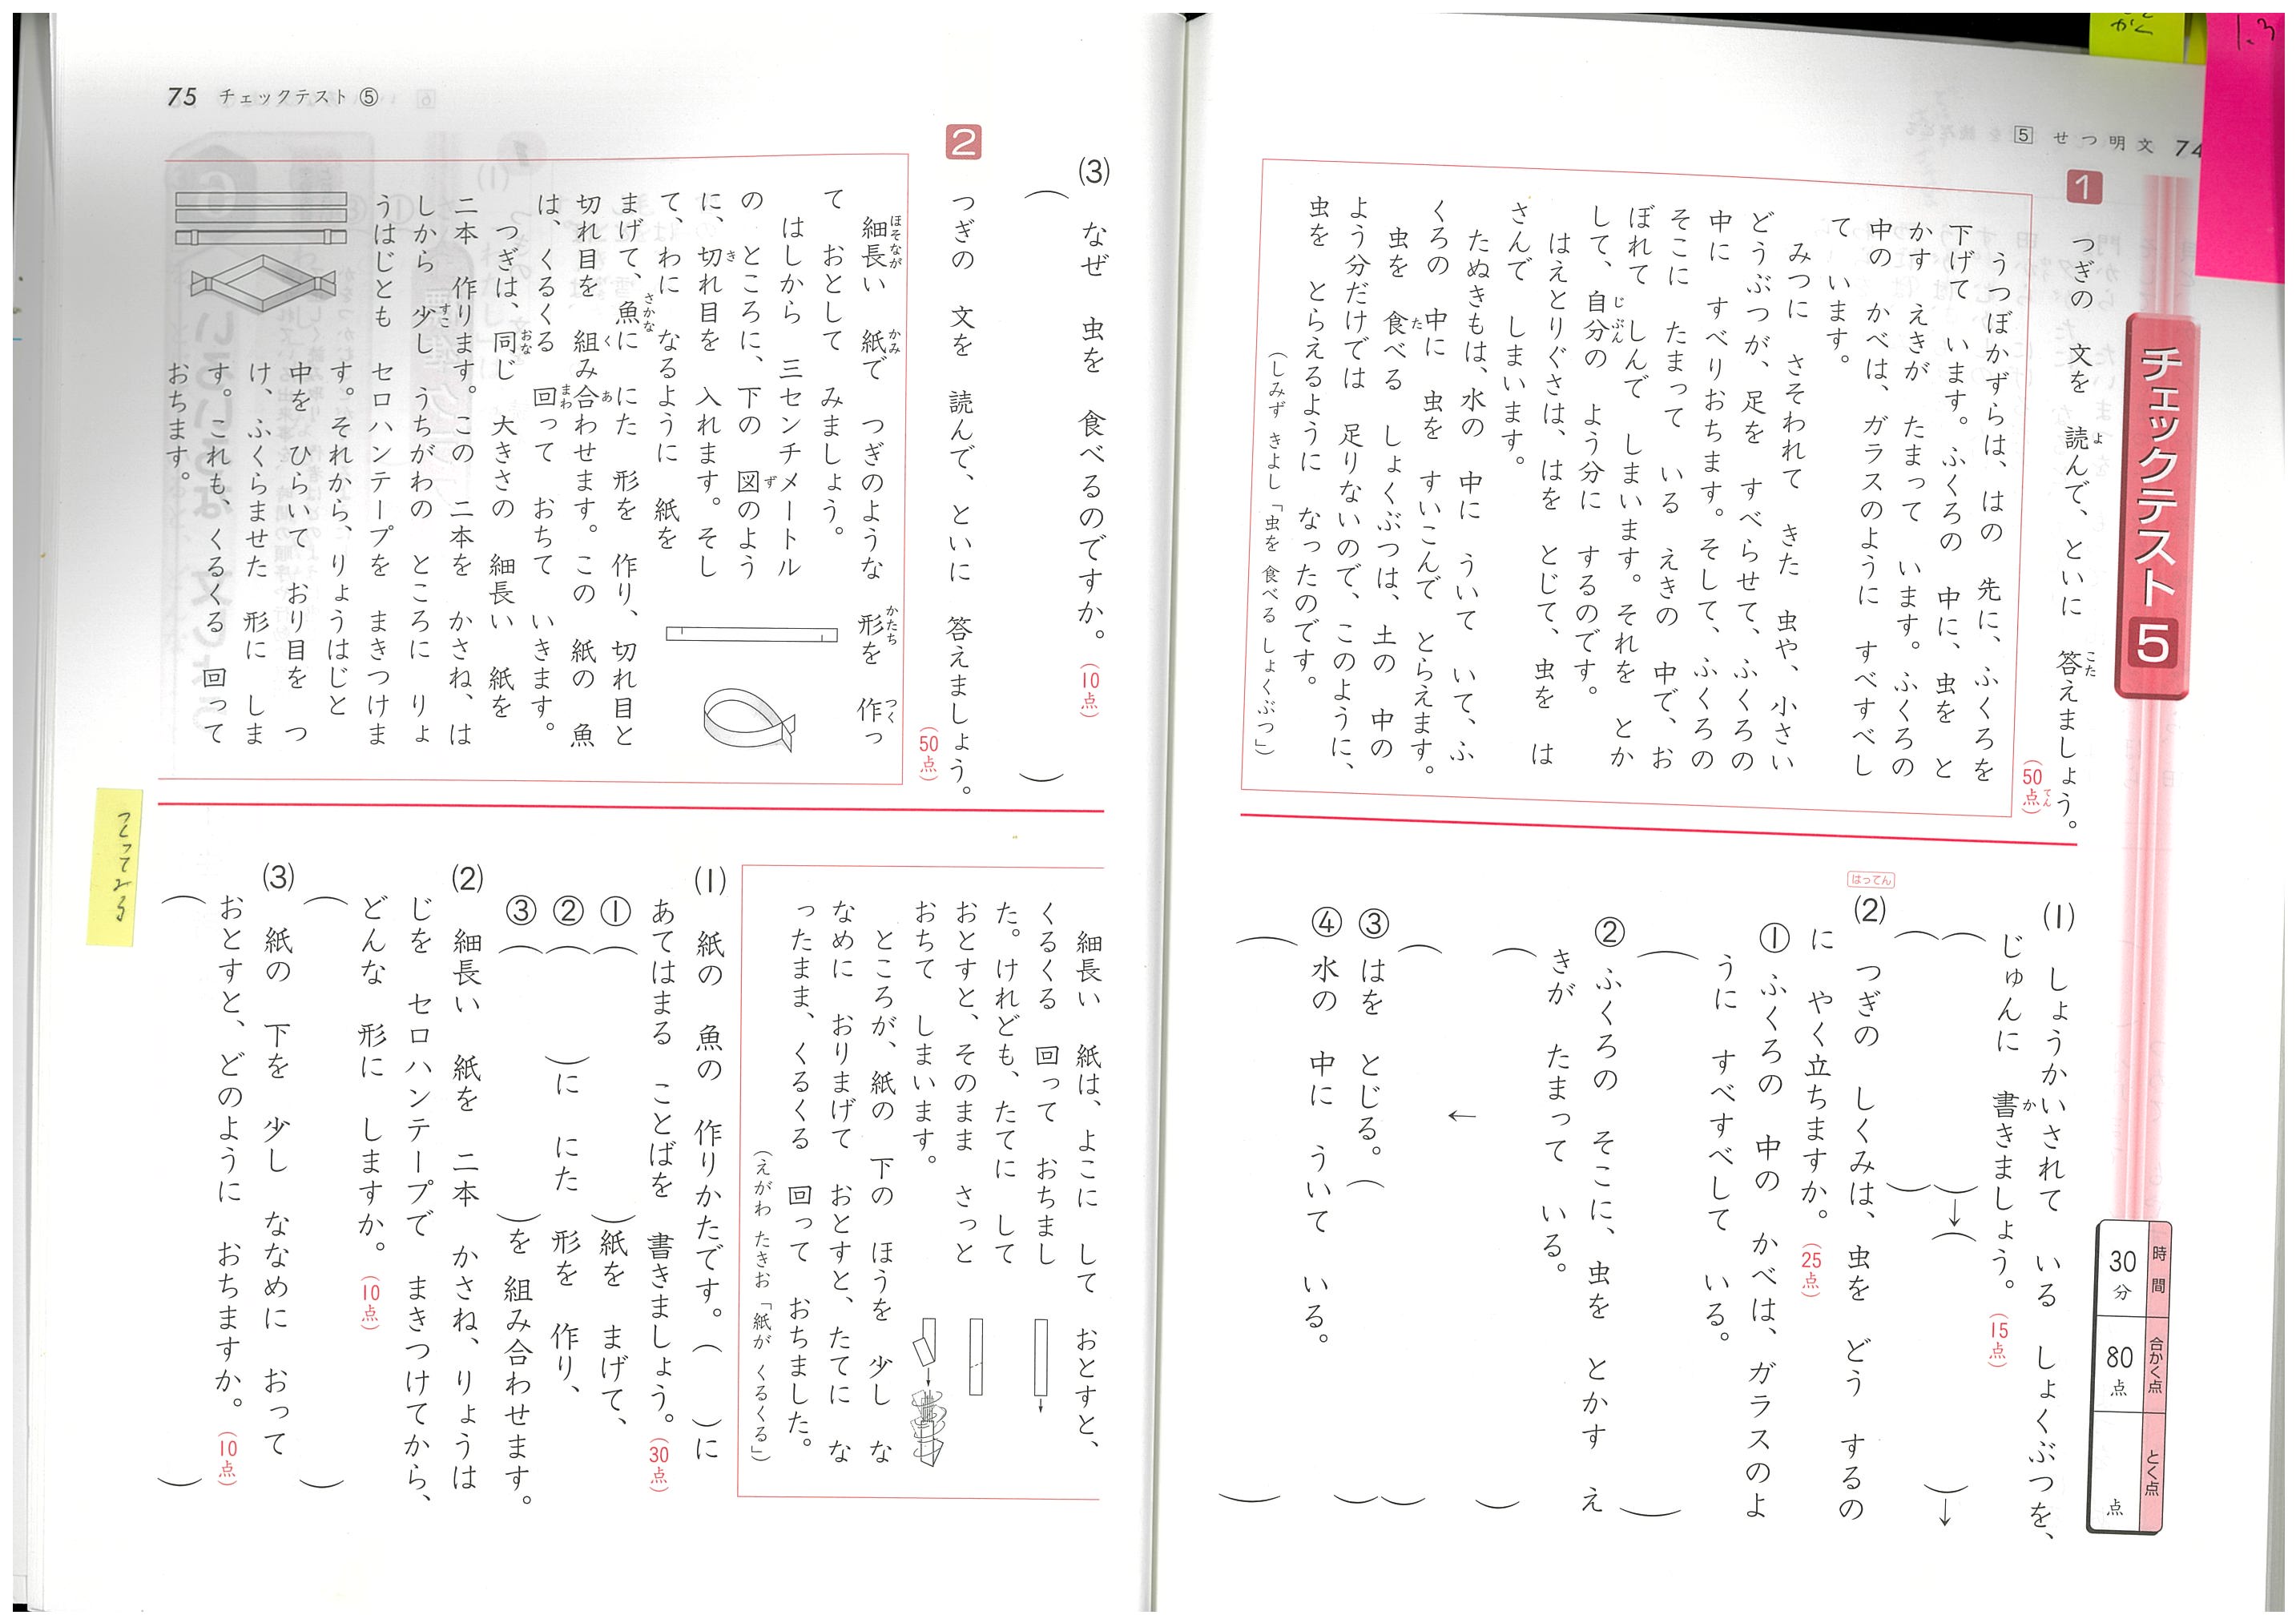 5 せつ明文 74
チェックテスト 5
時間 30分
合かく点 80点
とく点 点
1 つぎの 文を 読んで、といに 答えましょう。(50点)
うつぼかずらは、はの 先に、ふくろを
下げて います。ふくろの 中に、虫を と
かす えきが たまって います。ふくろの
中の かべは、ガラスのように すべすべし
て います。
みつに さそわれて きた 虫や、小さい
どうぶつが、足を すべらせて、ふくろの
中に すべりおちます。そして、ふくろの
そこに たまって いる えきの 中で、お
ぼれて しんで しまいます。それを とか
して、自分の よう分に するのです。
はえとりぐさは、はを とじて、虫を は
さんで しまいます。
たぬきもは、水の 中に ういて いて、ふ
くろの 中に 虫を すいこんで とらえます。
虫を 食べる しょくぶつは、土の 中の
よう分だけでは 足りないので、このように、
虫を とらえるように なったのです。
(しみず きよし「虫を 食べる しょくぶつ」)
(1) しょうかいされて いる しょくぶつを、
じゅんに 書きましょう。(15点)
( )→( )→
( )
はってん
(2) つぎの しくみは、虫を どう するの
に やく立ちますか。(25点)
① ふくろの 中の かべは、ガラスのよ
うに すべすべして いる。
( )
② ふくろの そこに、虫を とかす え
きが たまって いる。
( )
←
( )
③ はを とじる。( )
④ 水の 中に ういて いる。
( )
(3) なぜ 虫を 食べるのですか。(10点)
( )
2 つぎの 文を 読んで、といに 答えましょう。(50点)
細長い 紙で つぎのような 形を 作っ
て おとして みましょう。
はしから 三センチメートル
の ところに、下の 図のよう
に、切れ目を 入れます。そし
て、わに なるように 紙を
まげて、魚に にた 形を 作り、切れ目と
切れ目を 組み合わせます。この 紙の 魚
は、くるくる 回って おちて いきます。
つぎは、同じ 大きさの 細長い 紙を
二本 作ります。この 二本を かさね、は
しから 少し うちがわの ところに りょ
うはじとも セロハンテープを まきつけま
す。それから、りょうはじと
中を ひらいて おり目を つ
け、ふくらませた 形に しま
す。これも、くるくる 回って
おちます。
細長い 紙は、よこに して おとすと、
くるくる 回って おちまし
た。けれども、たてに して
おとすと、そのまま さっと
おちて しまいます。
ところが、紙の 下の ほうを 少し な
なめに おりまげて おとすと、たてに な
ったまま、くるくる 回って おちました。
(えがわ たきお「紙が くるくる」)
(1) 紙の 魚の 作りかたです。( )に
あてはまる ことばを 書きましょう。(30点)
①( )紙を まげて、
②( )に にた 形を 作り、
③( )を 組み合わせます。
(2) 細長い 紙を 二本 かさね、りょうは
じを セロハンテープで まきつけてから、
どんな 形に しますか。(10点)
( )
(3) 紙の 下を 少し ななめに おって
おとすと、どのように おちますか。(10点)
( )
75 チェックテスト ⑤
つくってみる
1.3
かく